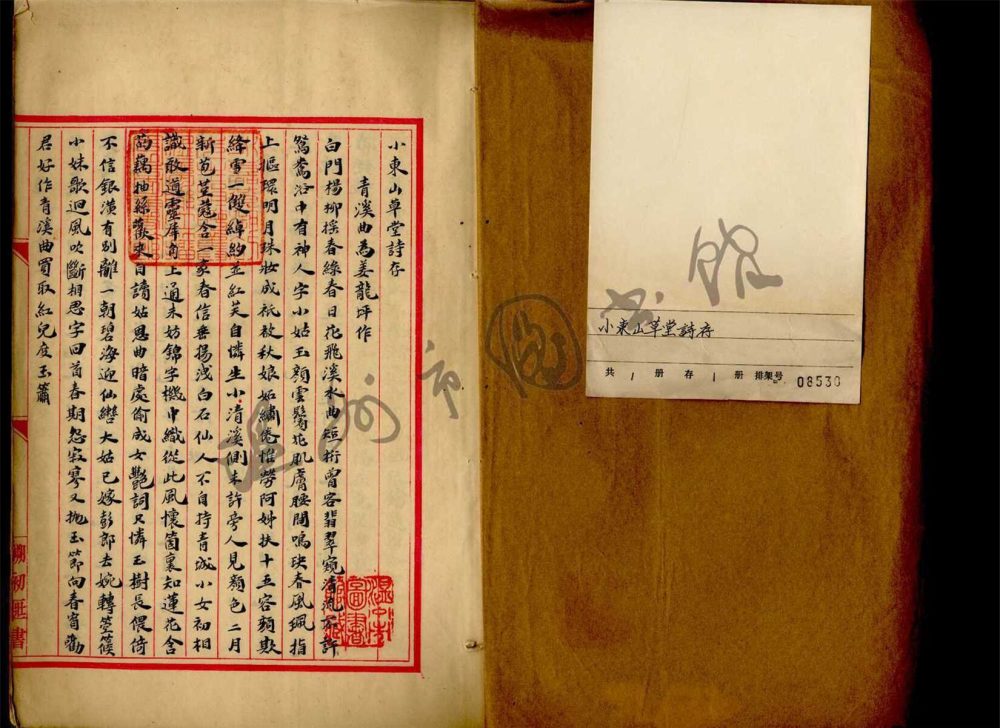 小東山草堂詩存
青溪曲為姜龍坪作
白門楊柳搖春綠春日花飛溪水曲短桁曾容翡翠窺清流不許
鴛鴦浴中有神人字小姑玉顏雲鬢花肌膚腰間鳴玦春風珮指
上摳環明月珠妝成祇敎秋娘妬繡倦惟勞阿姊扶十五容顏欺
絳雪一雙綽約並紅芙自憐生小清溪側未許旁人見顏色二月
新苞荳蔻含一家春信垂楊洩白石仙人不自持青城小女初相
識敢道靈犀角上通未妨錦字機中織從此風懷箇裏知蓮花含
菂藕抽絲歡來自讀姑恩曲暗處偷成女艷詞只憐玉樹長偎倚
不信銀潢有別離一朝碧海迎仙轡大姑已嫁彭郎去婉轉箜篌
小妹歌迴風吹斷相思字回首春期怨寂寥又拋玉節向春宵勸
君好作青溪曲買取紅兒度玉簫
溫州市圖書館
小東山草堂詩存
共 1 册 存 1 册 排架号 08530